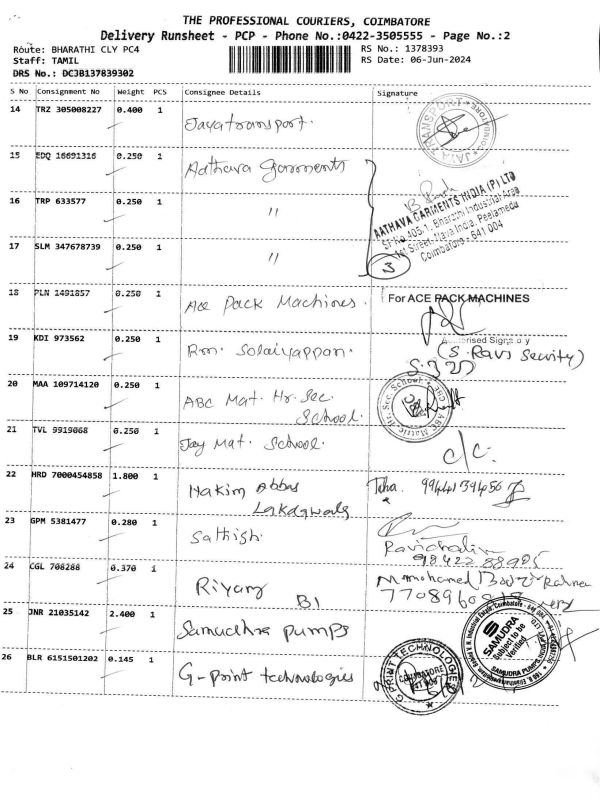 THE PROFESSIONAL COURIERS, COIMBATORE
Delivery Runsheet - PCP - Phone No.:0422-3505555 - Page No.:2
Route: BHARATHI CLY PC4 RS No.: 1378393
Staff: TAMIL RS Date: 06-Jun-2024
DRS No.: DC3B137839302
S No Consignment No Weight PCS Consignee Details Signature
14 TRZ 305008227 0.400 1 Jayatransport.
JAYA TRANSPORT
15 EDQ 16691316 0.250 1 Aathava garments
16 TRP 633577 0.250 1 "
AATHAVA GARMENTS INDIA (P) LTD
SF No. 405-1, Bharathi Industrial Area
1st Street, Nava India, Peelamedu
Coimbatore - 641 004
17 SLM 347678739 0.250 1 "
3
18 PLN 1491857 0.250 1 Ace Pack Machines.
For ACE PACK MACHINES
19 KDI 973562 0.250 1 Rm. Solaiyappan.
Authorised Signatory
(S. Ravi Security)
20 MAA 109714120 0.250 1 ABC Mat. Hr. Sec.
School.
21 TVL 9919068 0.250 1 Jay Mat. School.
c/c.
22 HRD 7000454858 1.800 1 Hakim Abbas
Lakdawala
Taha.
23 GPM 5381477 0.280 1 Sathish.
24 CGL 708288 0.370 1 Riyaz
B1
25 JNR 21035142 2.400 1 Samudhra pumps
SAMUDRA
Subject to be
Verified
26 BLR 6151501202 0.145 1 G-Print technologies
G PRINT TECHNOLOGIES
COIMBATORE